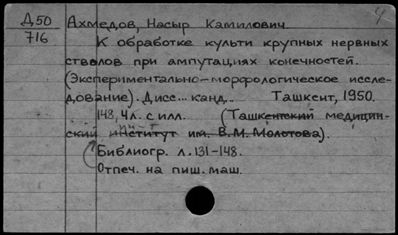 Д50 Ахмедов, Насыр Камилович 4
716
К обработке культи крупных нервных
стволов при ампутациях конечностей.
(Экспериментально-морфологическое иссле-
дование). Дисс... канд... Ташкент, 1950.
148, 4 л. с илл. (Ташкентский медицин-
ский институт им. В.М. Молотова).
Библиогр. л. 131-148.
Отпеч. на пиш. маш.